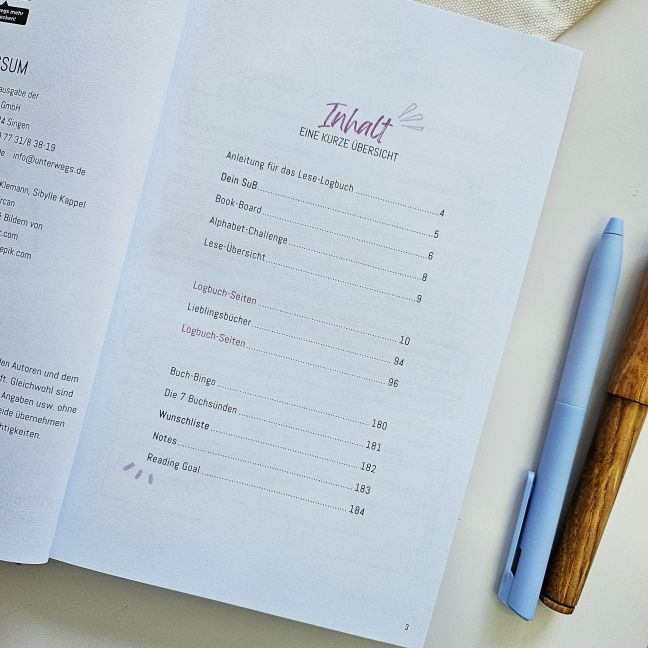 mehr
SSUM
ausgabe der
GmbH
Singen
77 31/8 38-19
info@unterwegs.de
Klemann, Sibylle Kappel
Bildern von
.com
epik.com
den Autoren und dem
ft. Gleichwohl sind
Angaben usw. ohne
eide übernehmen
htigkeiten.
Inhalt
EINE KURZE ÜBERSICHT
Anleitung für das Lese-Logbuch 4
Dein SuB 5
Book-Board 6
Alphabet-Challenge 8
Lese-Übersicht 9
Logbuch-Seiten 10
Lieblingsbücher 94
Logbuch-Seiten 96
Buch-Bingo 180
Die 7 Buchsünden 181
Wunschliste 182
Notes 183
Reading Goal 184
3